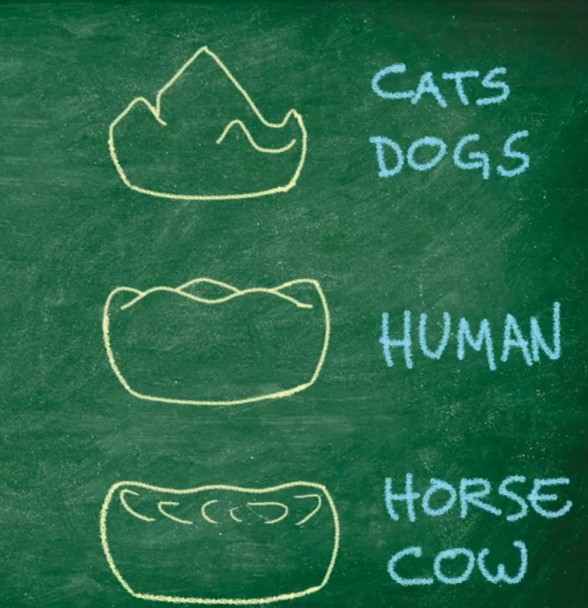 CATS
DOGS
HUMAN
HORSE
COW